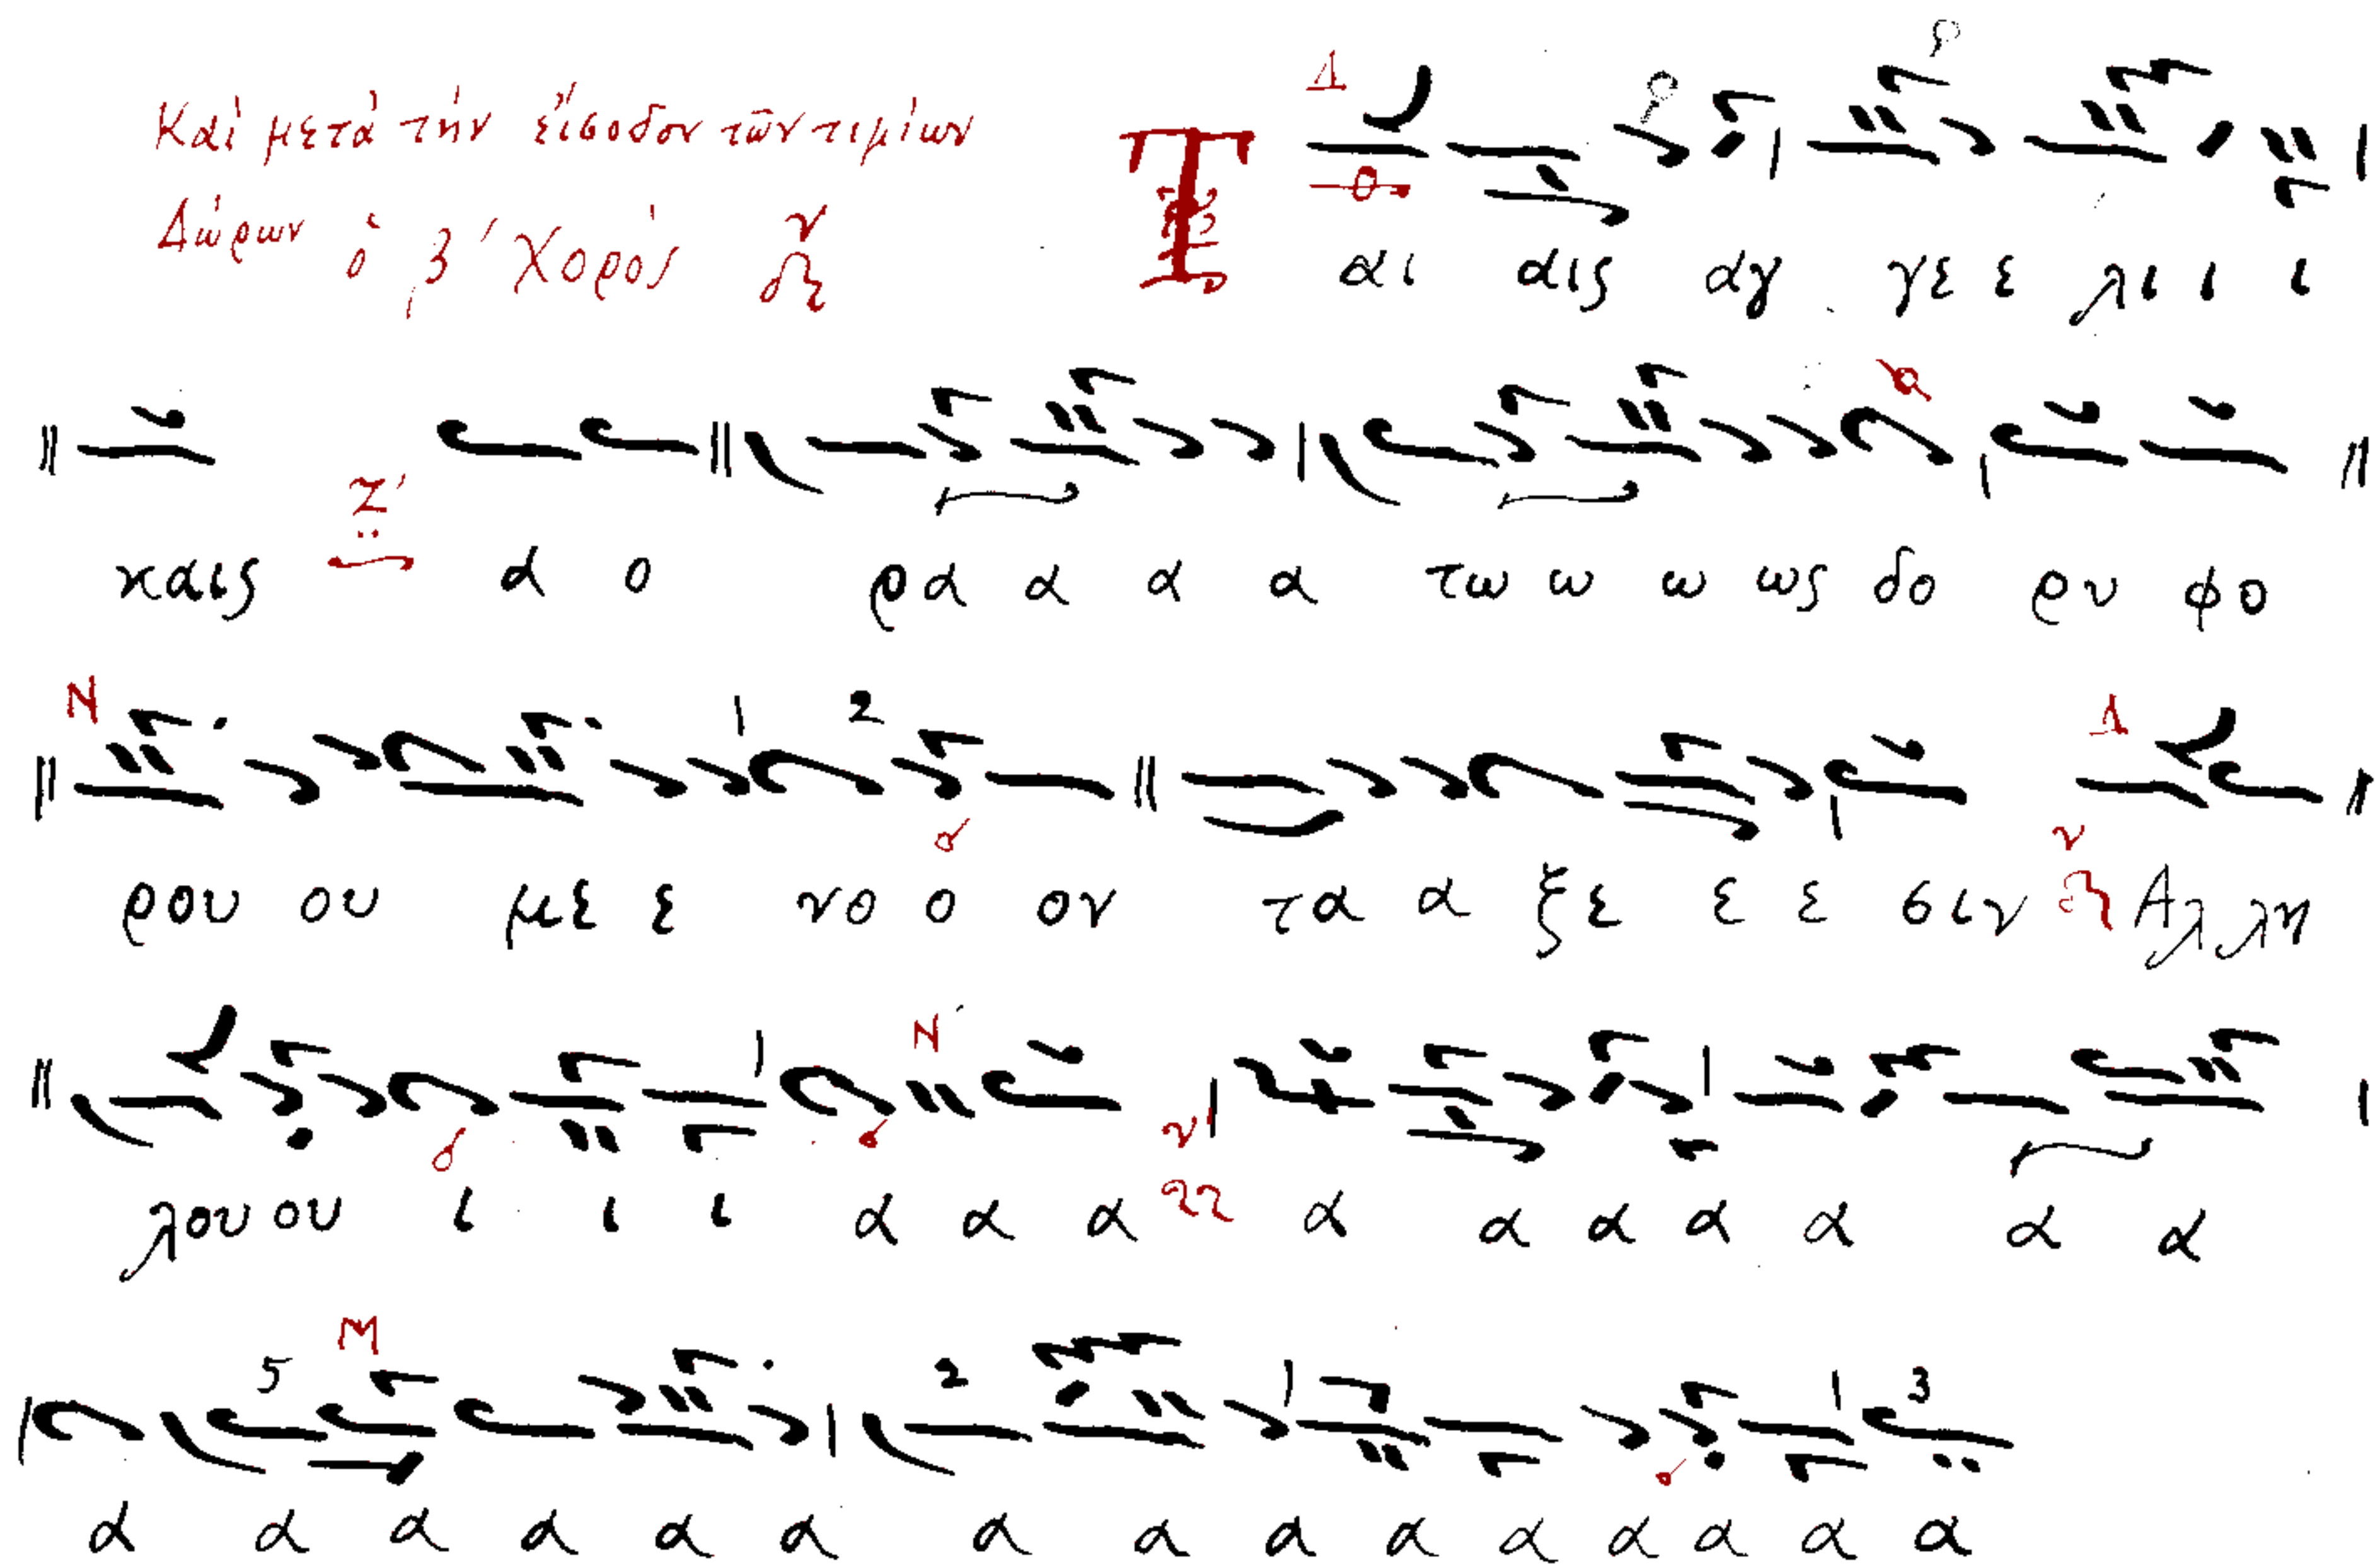 Καὶ μετὰ τὴν εἴσοδον τῶν τιμίων
Δώρων ὁ β΄ χορός
Τ αι αις αγ γε ε λι ι ι ι
καις Ζ΄ α ο ρα α α α τω ω ω ως δο ρυ φο
ρου ου με ε νο ο ον τα α ξε ε ε σιν Αλ λη
λου ου ι ι ι α α α α α α α α α α
α α α α α α α α α α α α α α α